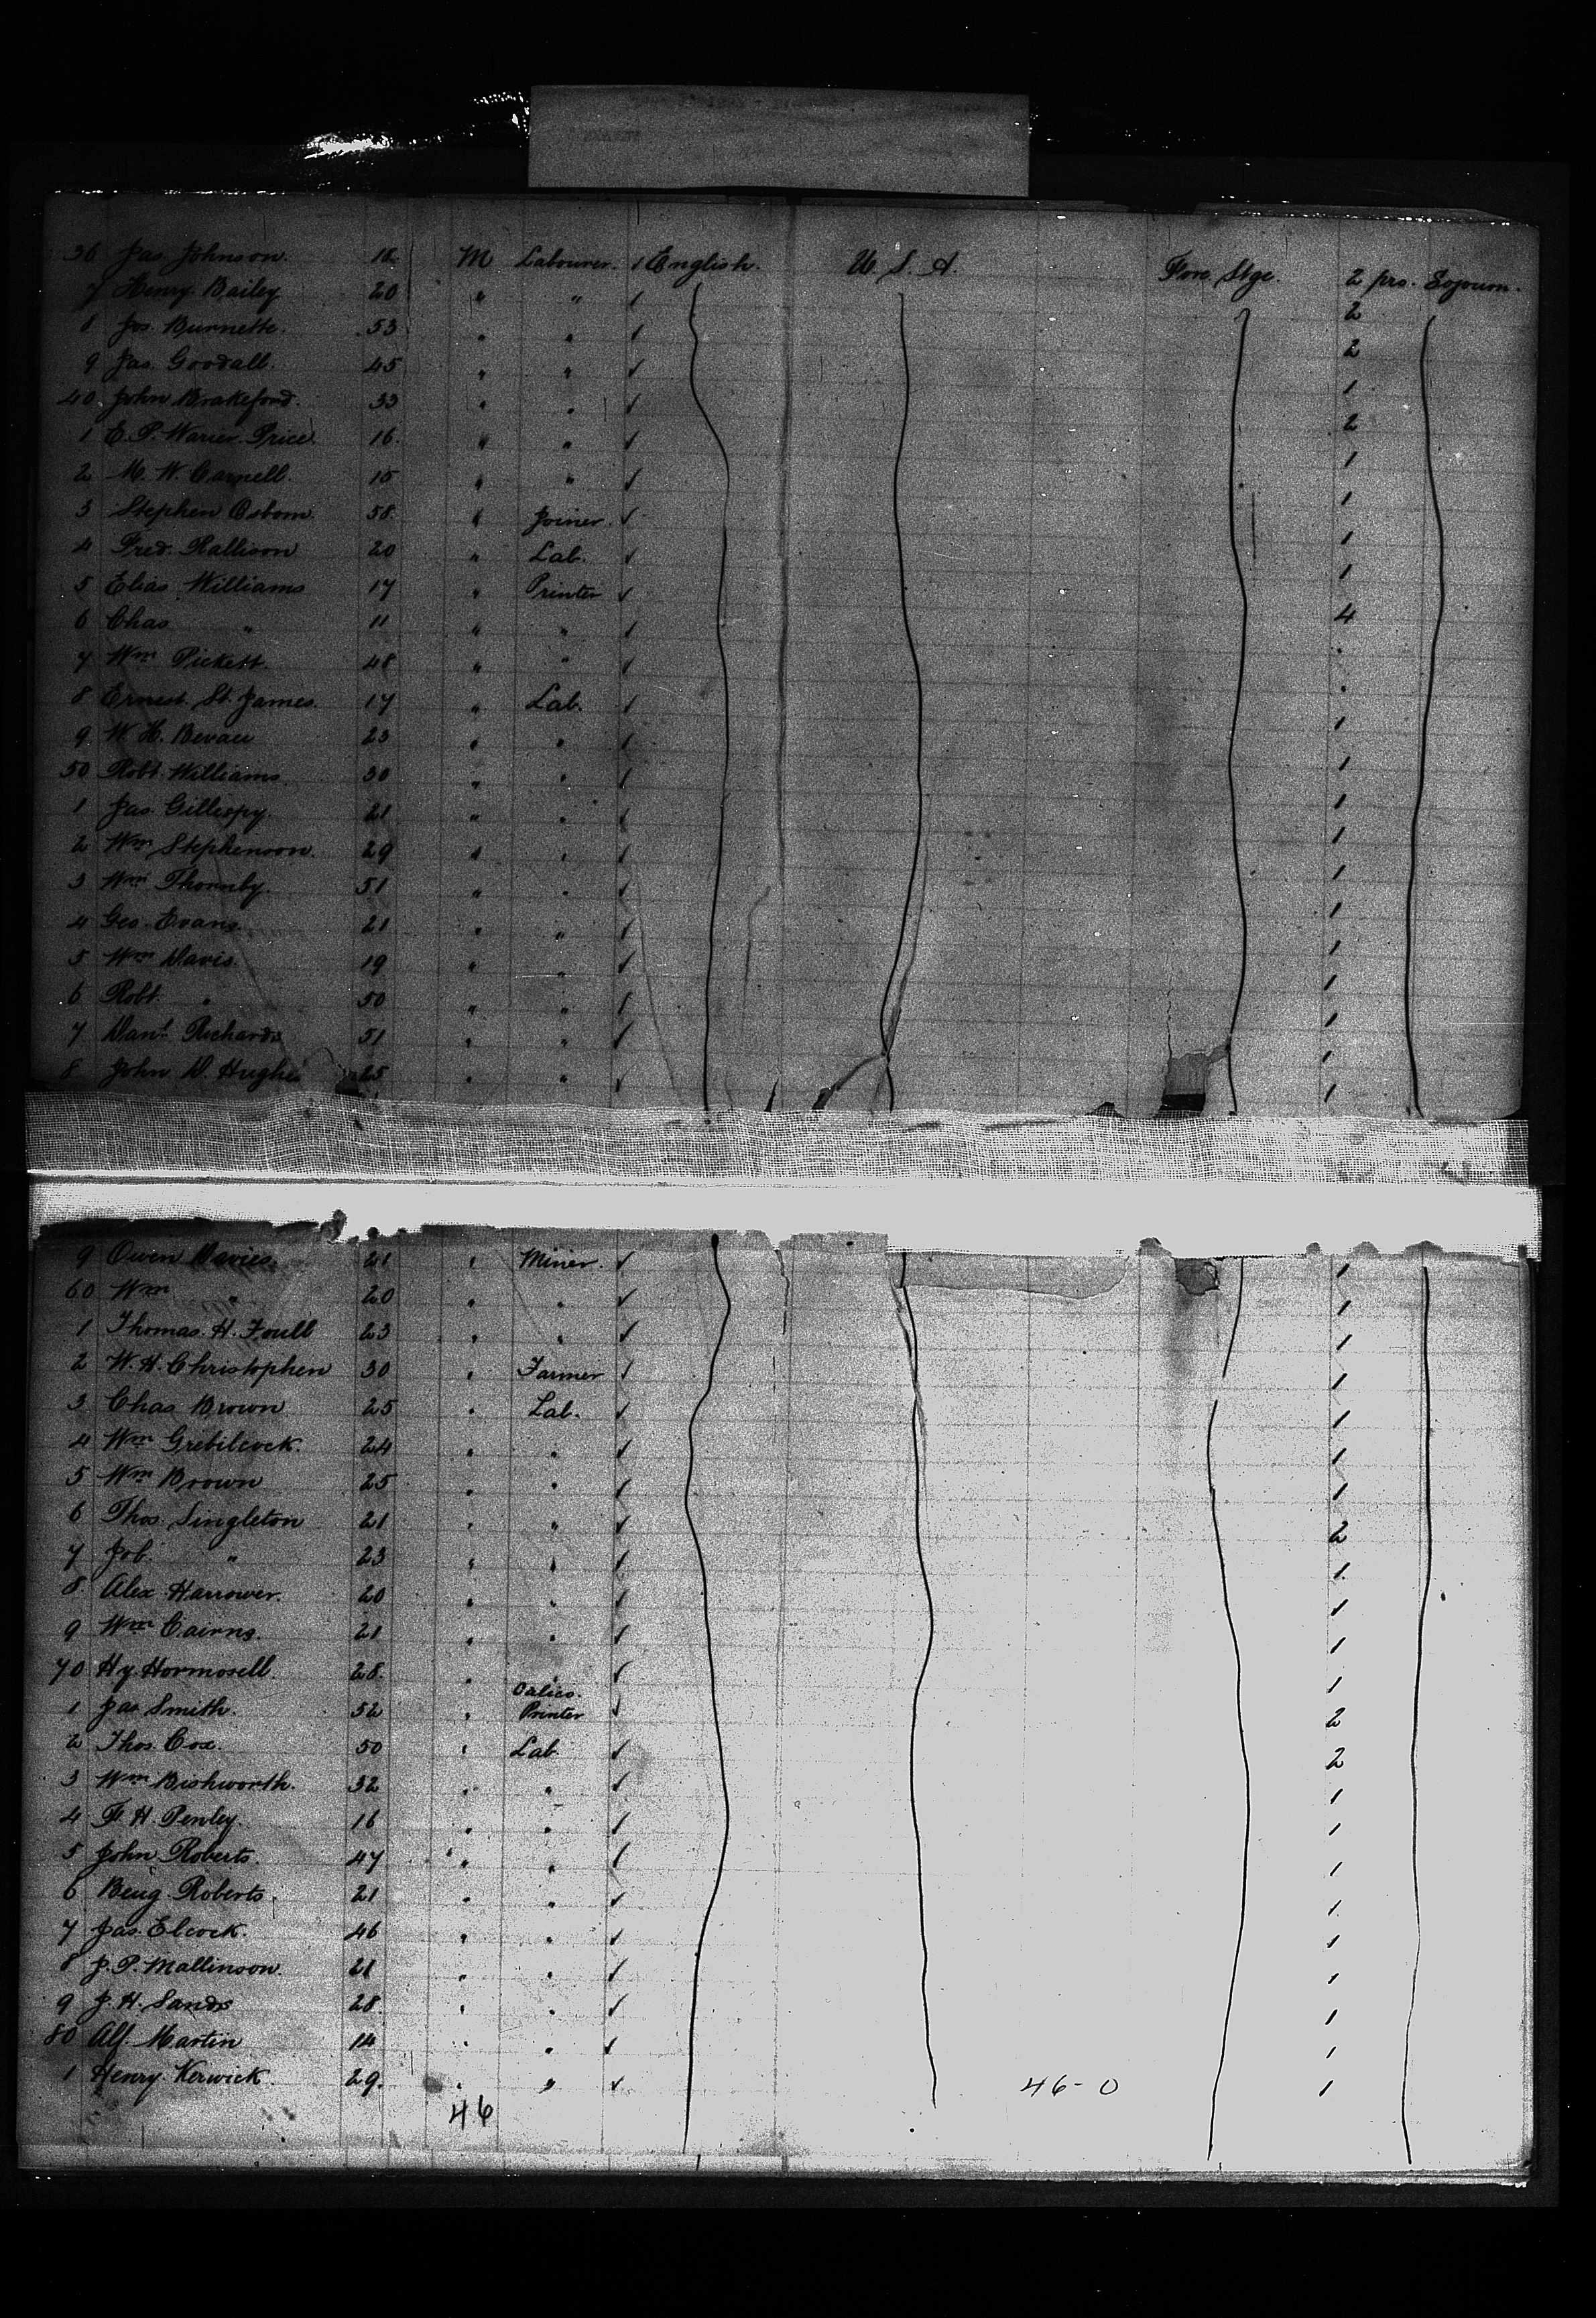 36 Jas. Johnson. 18 M Labourer. / English. U. S. A. Fore Stge. 2 pro. Sojourn.
7 Henry Bailey 20 " " / 2
8 Jos. Burnette. 53 " " / 2
9 Jas. Goodall. 45 " " / 1
40 John Brakeford. 33 " " / 2
1 E. P. Warier Price. 16. " " / 1
2 M. W. Carnell. 15 " " / 1
3 Stephen Osborn. 58. " Joiner. / 1
4 Fred. Rallison 20 " Lab. / 1
5 Elias Williams 17 " Printer / 4
6 Chas " 11 " " / "
7 Wm Pickett. 48 " " / "
8 Ernest. St. James. 17 " Lab. / 1
9 W. H. Bevan 23 " " / 1
50 Robt. Williams 30 " " / 1
1 Jas. Gillispy. 21 " " / 1
2 Wm Stephenson. 29 " " / 1
3 Wm Thornby. 51 " " / 1
4 Geo. Evans 21 " " / 1
5 Wm Davis. 19 " " / 1
6 Robt. " 50 " " / 1
7 Danl. Richards 51 " " / 1
8 John D. Hughes 25 " " / 1
9 Owen Davies. 21 " Miner. / 1
60 Wm " 20 " " / 1
1 Thomas. H. Foull 23 " " / 1
2 W. H. Christophen 30 " Farmer / 1
3 Chas Brown 25 " Lab. / 1
4 Wm Grebilcock. 24 " " / 1
5 Wm Brown 25 " " / 1
6 Thos. Singleton 21 " " / 2
7 Job. " 23 " " / 1
8 Alex Harrower. 20 " " / 1
9 Wm Cairns. 21 " " / 1
70 Hy. Hormosell 28. " " / 1
1 Jas Smith. 52 " Calico. Printer / 2
2 Thos. Cox. 50 " Lab / 2
3 Wm Bishworth. 32 " " / 1
4 F. H. Penley. 16 " " / 1
5 John Roberts. 47 " " / 1
6 Benj. Roberts. 21 " " / 1
7 Jas. Elcock. 46 " " / 1
8 J. P. Mallinson. 21 " " / 1
9 J. H. Sands 28. " " / 1
80 Alf. Martin 14 " " / 1
1 Henry. Kerwick. 29. " " / 46-0 1
46